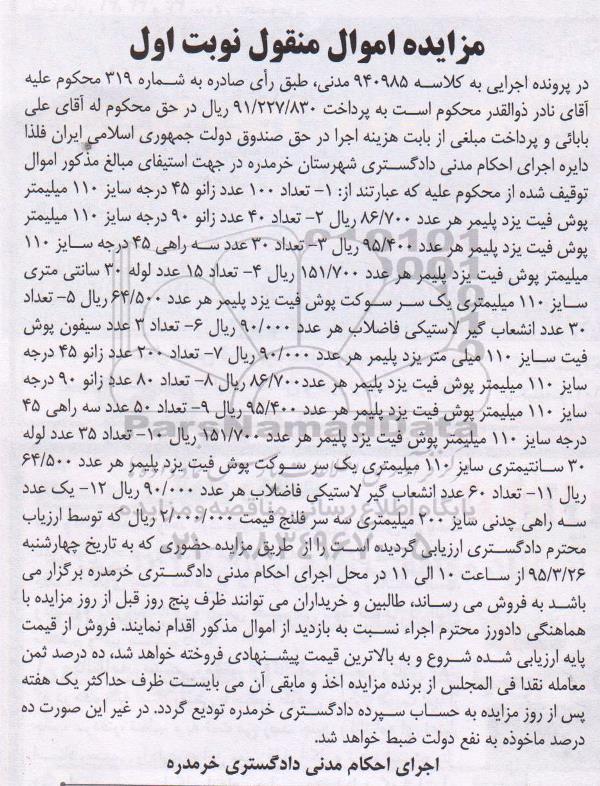 مزایده اموال منقول نوبت اول
در پرونده اجرایی به کلاسه ۹۴۰۹۸۵ مدنی، طبق رأی صادره به شماره ۳۱۹ محکوم علیه
آقای نادر ذوالقدر محکوم است به پرداخت ۹۱/۲۲۷/۸۳۰ ریال در حق محکوم له آقای علی
بابائی و پرداخت مبلغی از بابت هزینه اجرا در حق صندوق دولت جمهوری اسلامی ایران فلذا
دایره اجرای احکام مدنی دادگستری شهرستان خرمدره در جهت استیفای مبالغ مذکور اموال
توقیف شده از محکوم علیه که عبارتند از: ۱- تعداد ۱۰۰ عدد زانو ۴۵ درجه سایز ۱۱۰ میلیمتر
پوش فیت یزد پلیمر هر عدد ۸۶/۷۰۰ ریال ۲- تعداد ۴۰ عدد زانو ۹۰ درجه سایز ۱۱۰ میلیمتر
پوش فیت یزد پلیمر هر عدد ۹۵/۴۰۰ ریال ۳- تعداد ۳۰ عدد سه راهی ۴۵ درجه سایز ۱۱۰
میلیمتر پوش فیت یزد پلیمر هر عدد ۱۵۱/۷۰۰ ریال ۴- تعداد ۱۵ عدد لوله ۳۰ سانتی متری
سایز ۱۱۰ میلیمتری یک سر سوکت پوش فیت یزد پلیمر هر عدد ۶۴/۵۰۰ ریال ۵- تعداد
۳۰ عدد انشعاب گیر لاستیکی فاضلاب هر عدد ۹۰/۰۰۰ ریال ۶- تعداد ۳ عدد سیفون پوش
فیت سایز ۱۱۰ میلی متر یزد پلیمر هر عدد ۹۰/۰۰۰ ریال ۷- تعداد ۲۰۰ عدد زانو ۴۵ درجه
سایز ۱۱۰ میلیمتر پوش فیت یزد پلیمر هر عدد ۸۶/۷۰۰ ریال ۸- تعداد ۸۰ عدد زانو ۹۰ درجه
سایز ۱۱۰ میلیمتر پوش فیت یزد پلیمر هر عدد ۹۵/۴۰۰ ریال ۹- تعداد ۵۰ عدد سه راهی ۴۵
درجه سایز ۱۱۰ میلیمتر پوش فیت یزد پلیمر هر عدد ۱۵۱/۷۰۰ ریال ۱۰- تعداد ۳۵ عدد لوله
۳۰ سانتیمتری سایز ۱۱۰ میلیمتری یک سر سوکت پوش فیت یزد پلیمر هر عدد ۶۴/۵۰۰
ریال ۱۱- تعداد ۶۰ عدد انشعاب گیر لاستیکی فاضلاب هر عدد ۹۰/۰۰۰ ریال ۱۲- یک عدد
سه راهی چدنی سایز ۲۰۰ میلیمتری سه سر فلنج قیمت ۲/۰۰۰/۰۰۰ ریال که توسط ارزیاب
محترم دادگستری ارزیابی گردیده است را از طریق مزایده حضوری که به تاریخ چهارشنبه
۹۵/۳/۲۶ از ساعت ۱۰ الی ۱۱ در محل اجرای احکام مدنی دادگستری خرمدره برگزار می
باشد به فروش می رساند، طالبین و خریداران می توانند ظرف پنج روز قبل از روز مزایده با
هماهنگی دادورز محترم اجراء نسبت به بازدید از اموال مذکور اقدام نمایند. فروش از قیمت
پایه ارزیابی شده شروع و به بالاترین قیمت پیشنهادی فروخته خواهد شد، ده درصد ثمن
معامله نقدا فی المجلس از برنده مزایده اخذ و مابقی آن می بایست ظرف حداکثر یک هفته
پس از روز مزایده به حساب سپرده دادگستری خرمدره تودیع گردد. در غیر این صورت ده
درصد ماخوذه به نفع دولت ضبط خواهد شد.
اجرای احکام مدنی دادگستری خرمدره